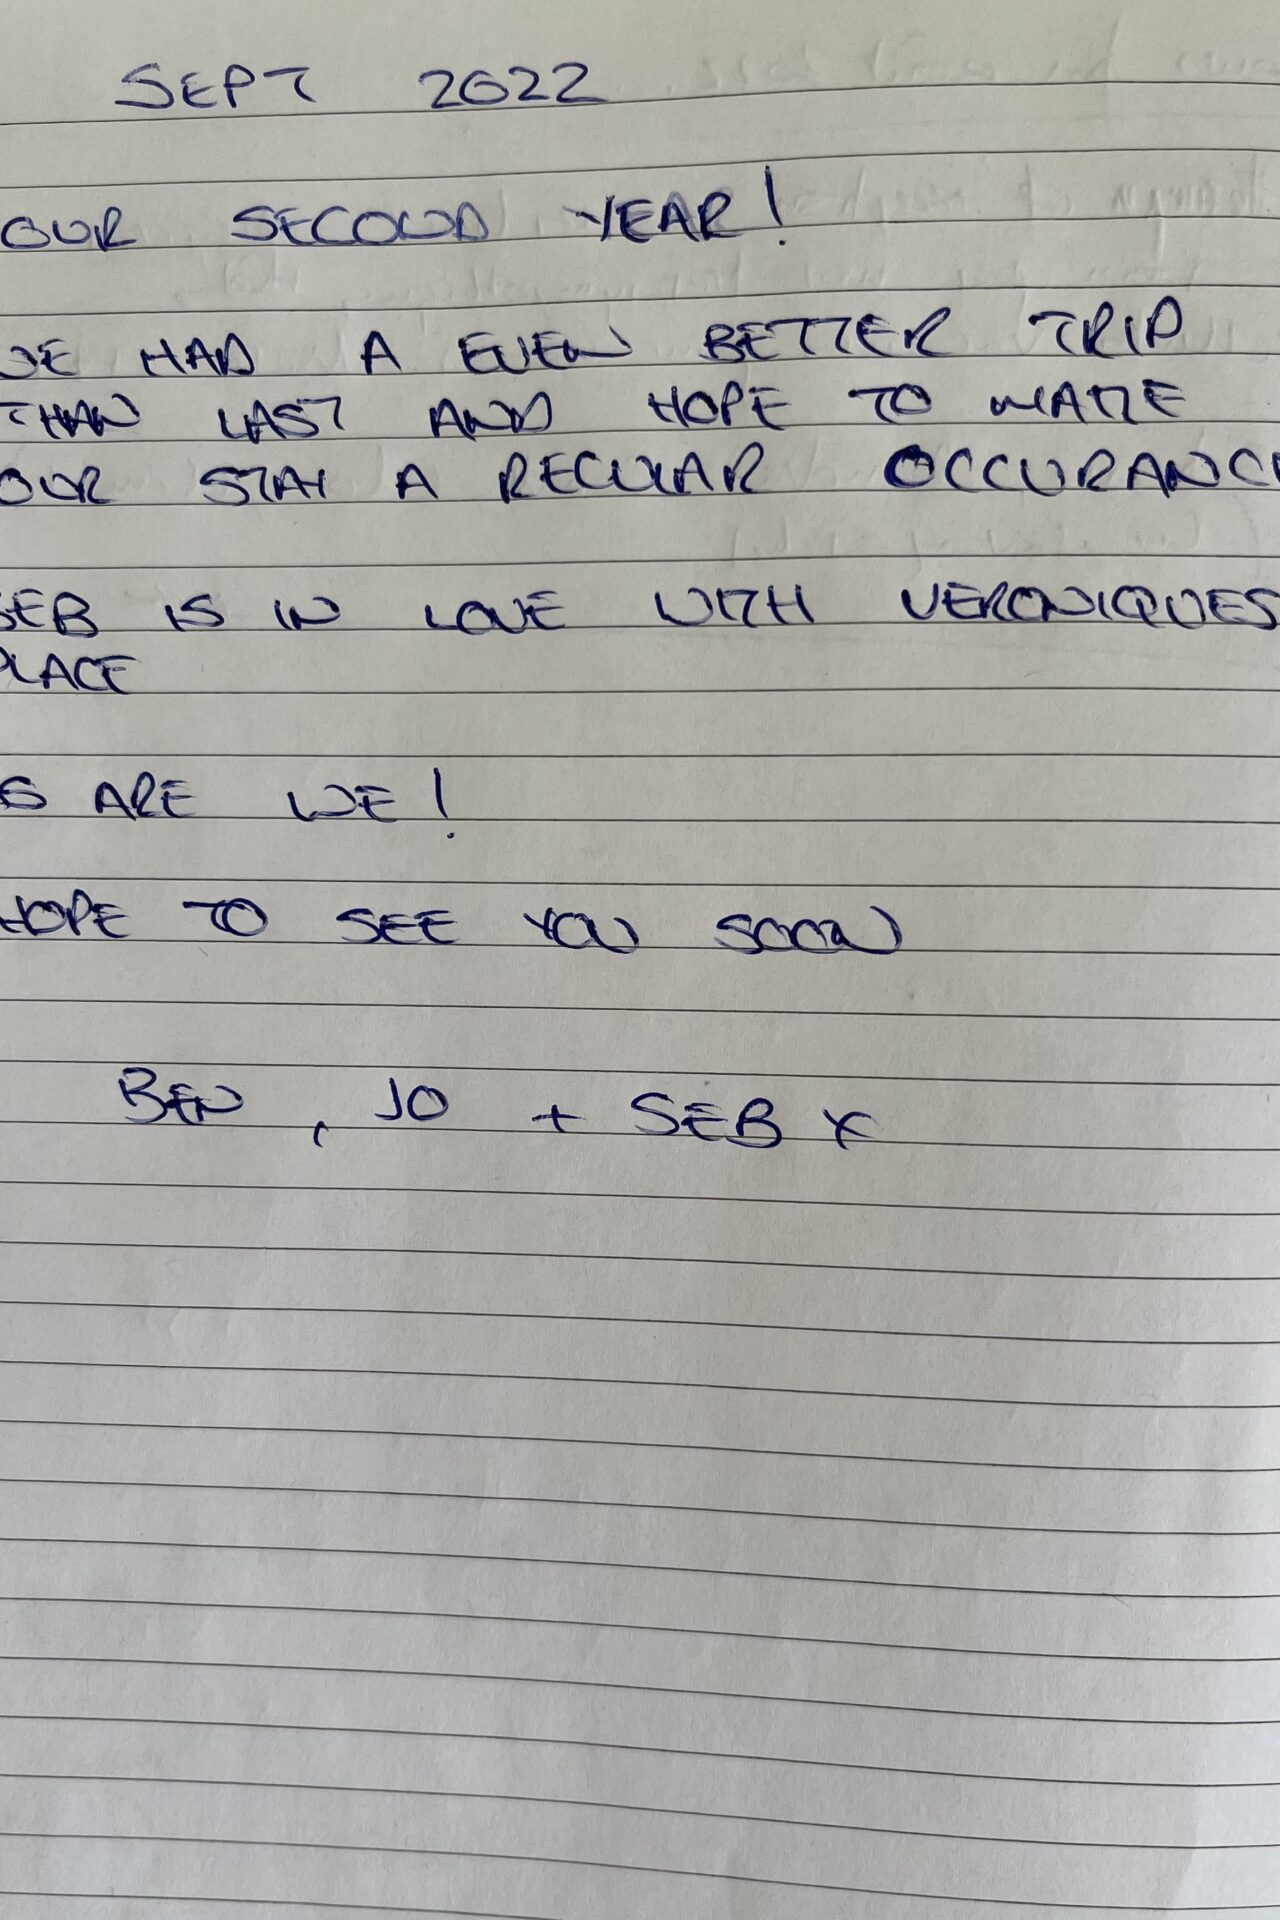 SEPT 2022
OUR SECOND YEAR!
WE HAD A EVEN BETTER TRIP
THAN LAST AND HOPE TO MAKE
OUR STAY A REGULAR OCCURANCE
SEB IS IN LOVE WITH VERONIQUES
PLACE
AS ARE WE!
HOPE TO SEE YOU SOON
BEN, JO + SEB X